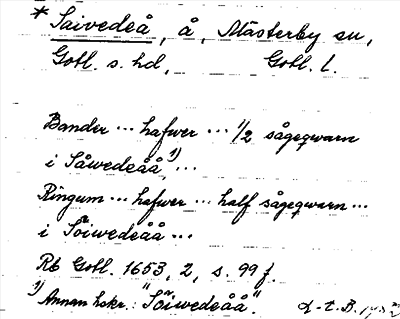 * Saivedeå, å, Mästerby sn,
Gotl. s. hd, Gotl. l.
Bander ... hafwer ... 1/2 sågeqwarn
i Såwedeåå 1) ...
Ringum ... hafwer ... half sågeqwarn ...
i Söiwedeåå ...
Rb Gotl. 1653, 2, s. 99 f.
1) Annan hskr.: "Söiwedeåå".